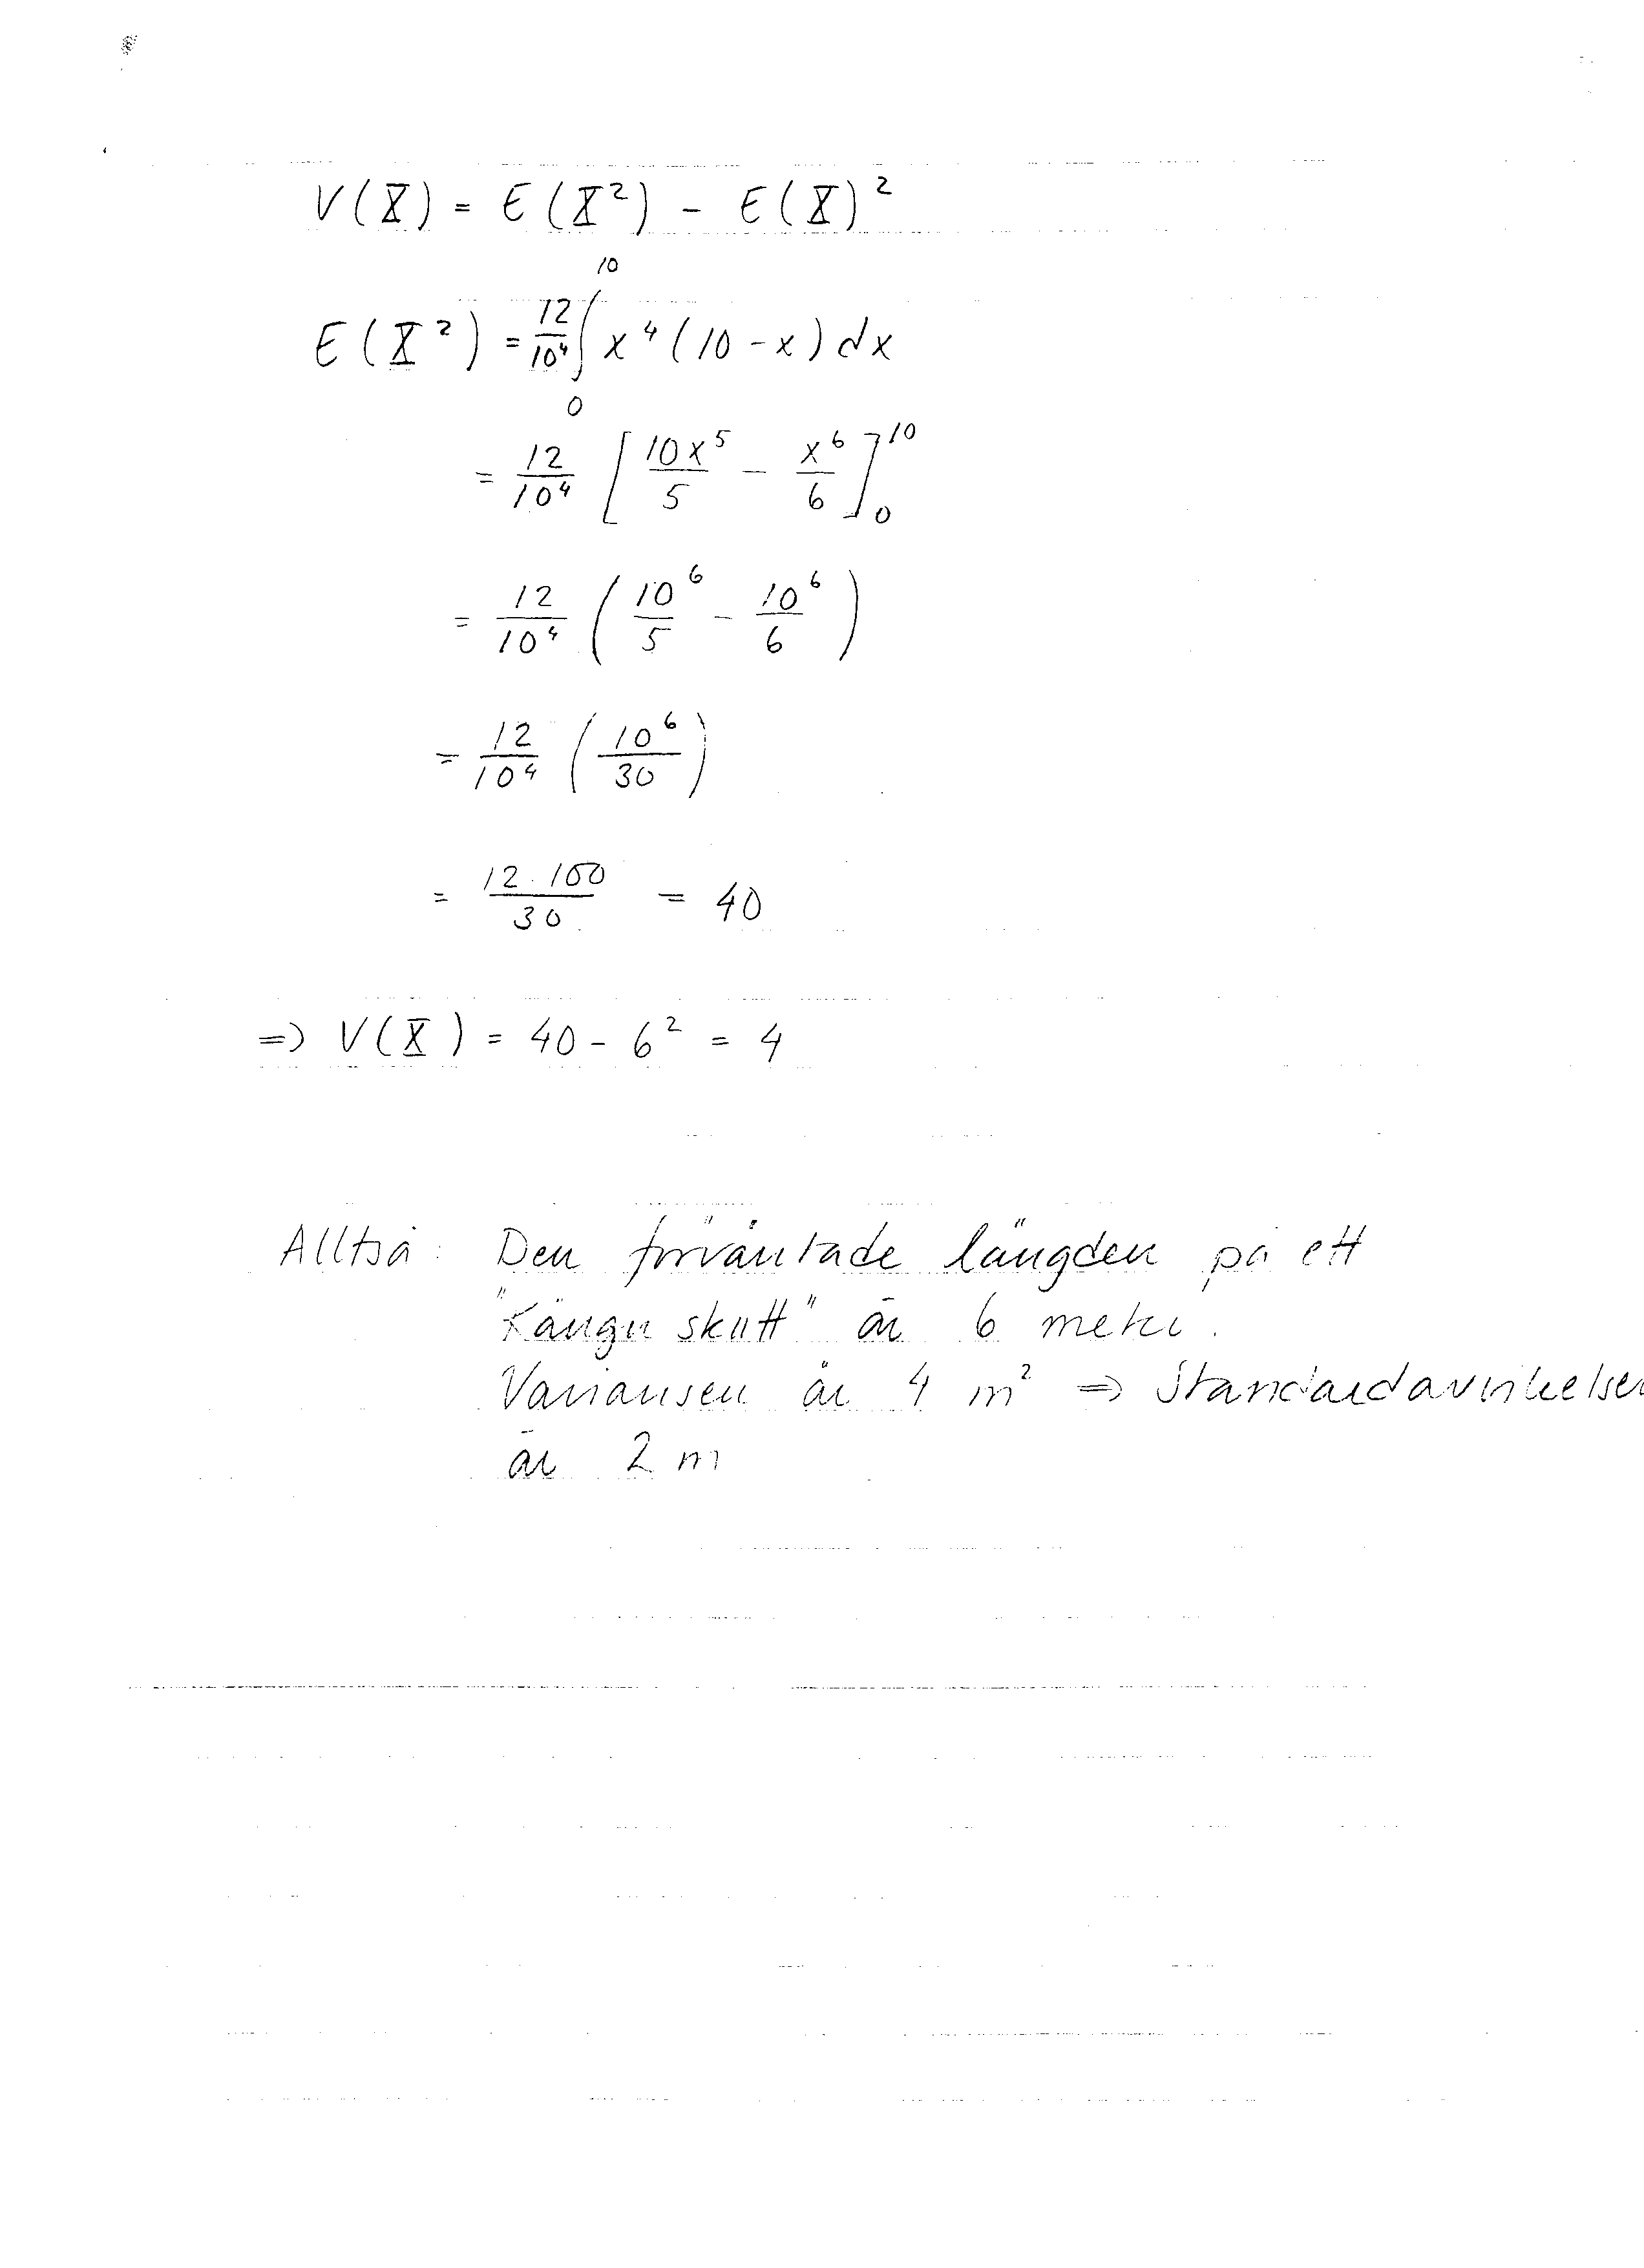 V(X) = E(X²) - E(X)²
E(X²) = 12/10⁴ ∫₀¹⁰ x⁴(10-x)dx
= 12/10⁴ [10x⁵/5 - x⁶/6]₀¹⁰
= 12/10⁴ (10⁶/5 - 10⁶/6)
= 12/10⁴ (10⁶/30)
= 12·100/30 = 40
=> V(X) = 40 - 6² = 4
Alltså: Den förväntade längden på ett
"Känguruskutt" är 6 meter.
Variansen är 4 m² => Standardavvikelsen
är 2 m